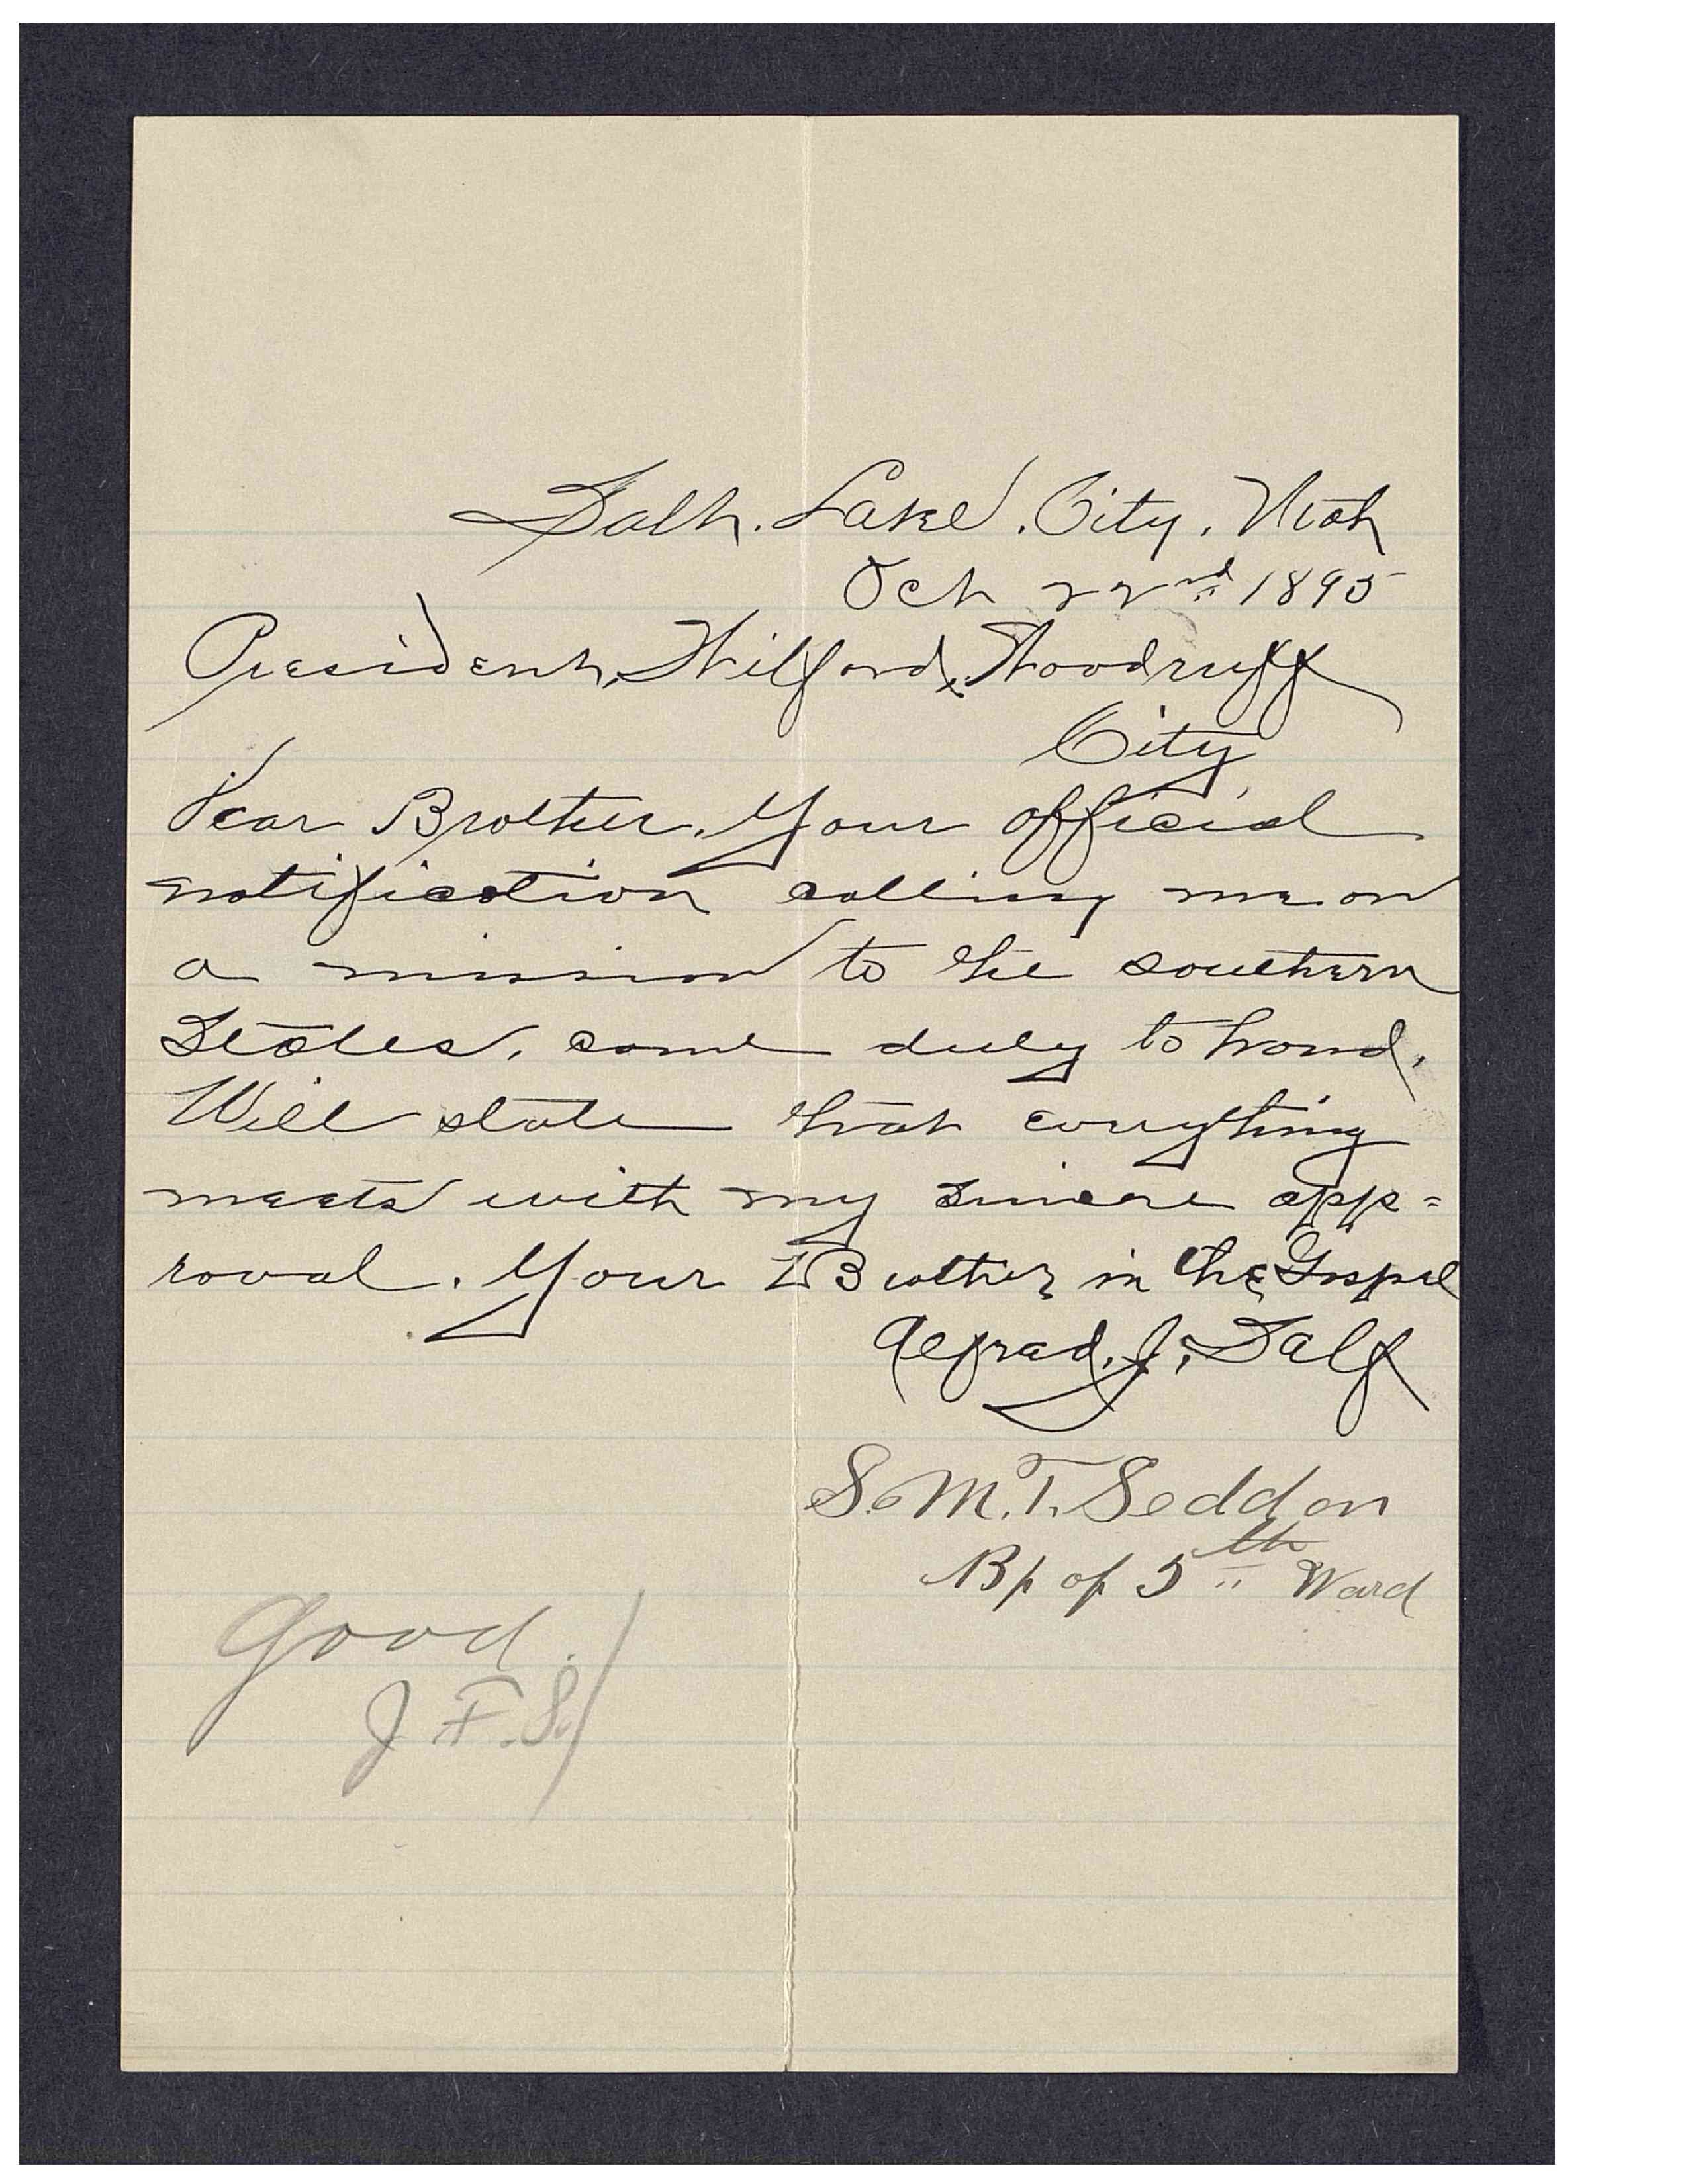 Salt. Lake. City. Utah
Oct 22nd 1895
President, Wilford, Woodruff
City
Dear Brother. Your official
notification calling me on
a mission to the southern
States, came duly to hand.
Will state that everything
meets with my sincere app=
roval. Your Brother in the Gospel
Alfred. J. Salf
S. M. T. Seddon
Bp of 5th Ward
Good.
J F. S.